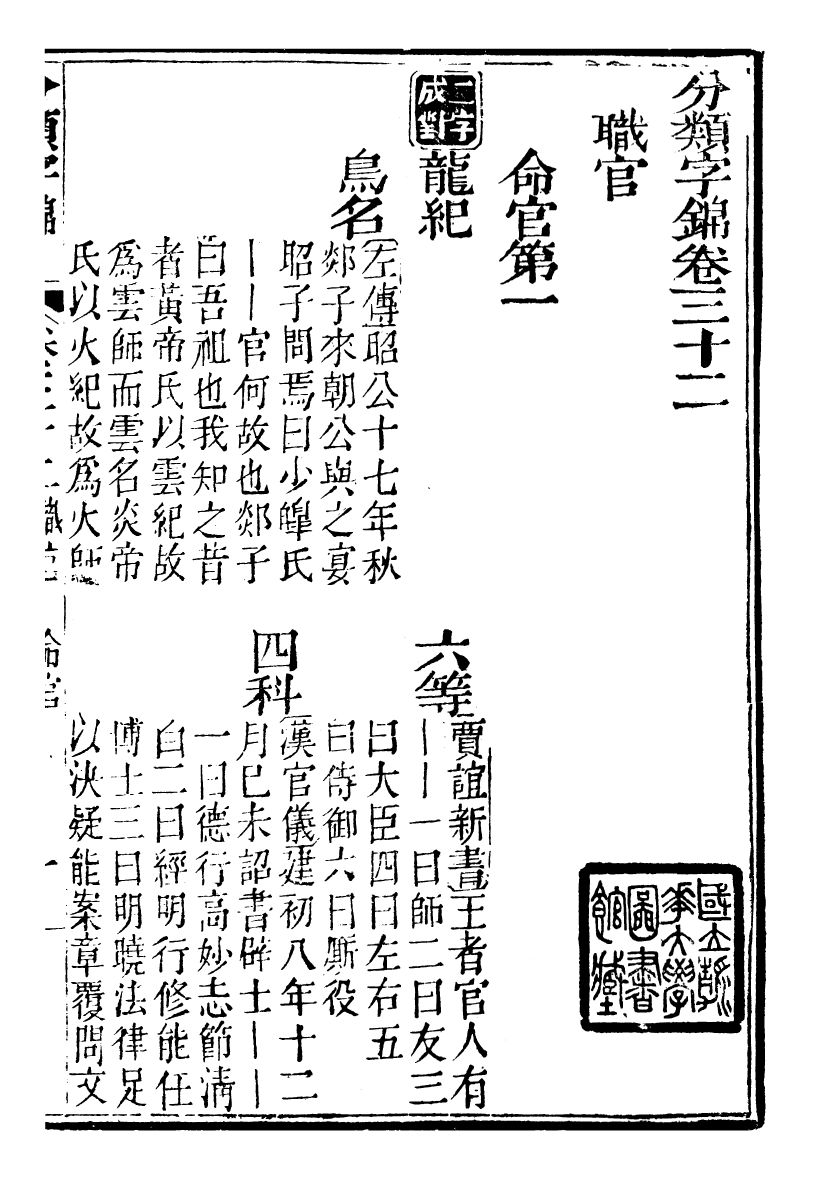 分類字錦卷三十二
職官
命官第一
二字成對
龍紀
鳥名
左傳昭公十七年秋
郯子來朝公與之宴
昭子問焉曰少皞氏
丨丨官何故也郯子
曰吾祖也我知之昔
者黃帝氏以雲紀故
爲雲師而雲名炎帝
氏以火紀故爲火師
六等
賈誼新書王者官人有
丨丨一曰師二曰友三
曰大臣四曰左右五
曰侍御六曰厮役
四科
漢官儀建初八年十二
月己未詔書辟士丨丨
一曰德行高妙志節淸
白二曰經明行修能任
博士三曰明曉法律足
以決疑能案章覆問文
國立清華大學圖書館藏